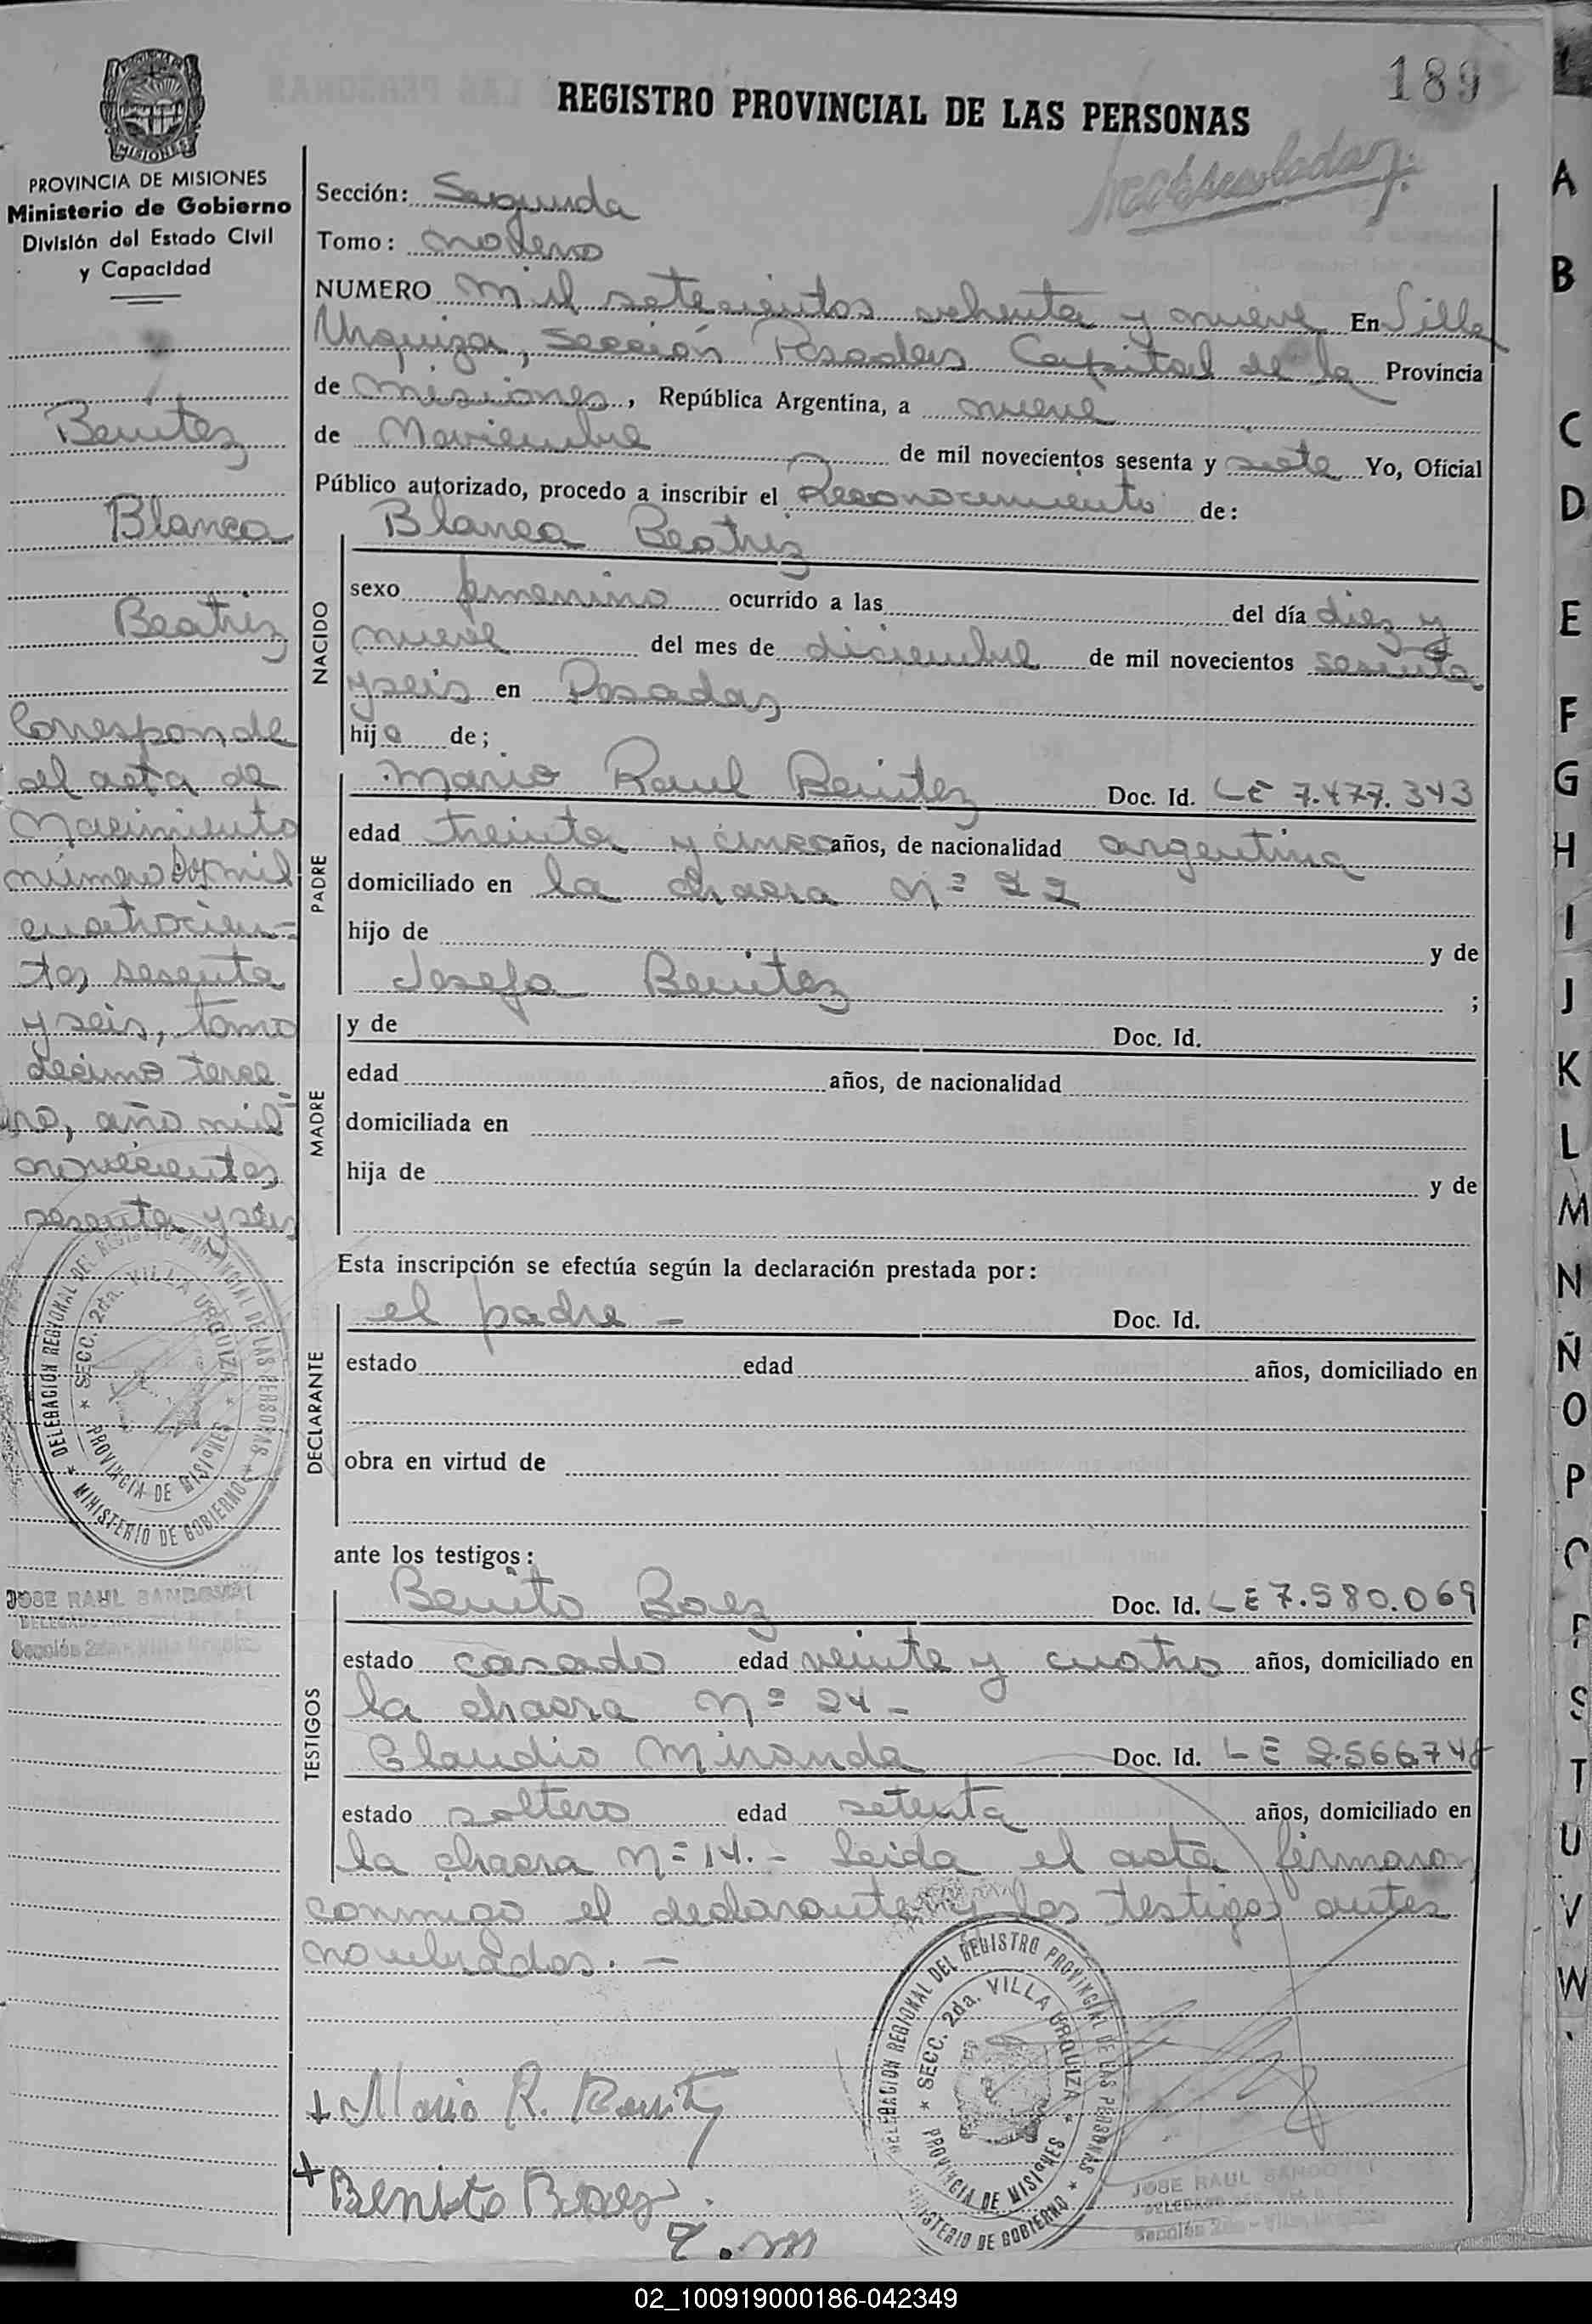 189
REGISTRO PROVINCIAL DE LAS PERSONAS
MISIONES
PROVINCIA DE MISIONES
Ministerio de Gobierno
División del Estado Civil
y Capacidad
Benitez
Blanca
Beatriz
Corresponde
al acta de
Nacimiento
número dos mil
cuatrocien-
tos sesenta
y seis, tomo
décimo terce
ro, año mil
novecientos
sesenta y seis
DELEGACION REGIONAL DEL REGISTRO PROVINCIAL DE LAS PERSONAS
* SECC. 2da. VILLA URQUIZA *
PROVINCIA DE MISIONES
* MINISTERIO DE GOBIERNO *
JOSE RAUL SANDOVAL
DELEGADO
Sección 2da - Villa Urquiza
Sección: Segunda
Tomo: noveno
NUMERO mil setecientos ochenta y nueve En Villa
Urquiza, Sección Posadas Capital de la Provincia
de Misiones, República Argentina, a nueve
de Noviembre de mil novecientos sesenta y siete Yo, Oficial
Público autorizado, procedo a inscribir el Reconocimiento de:
NACIDO
Blanca Beatriz
sexo femenino ocurrido a las del día diez y
nueve del mes de diciembre de mil novecientos sesenta
y seis en Posadas
hija de;
PADRE
Mario Raul Benitez Doc. Id. LE 7.477.343
edad treinta y cinco años, de nacionalidad argentina
domiciliado en la chacra Nº 22
hijo de y de
Josefa Benitez ;
MADRE
y de Doc. Id.
edad años, de nacionalidad
domiciliada en
hija de y de
Esta inscripción se efectúa según la declaración prestada por:
DECLARANTE
el padre - Doc. Id.
estado edad años, domiciliado en
obra en virtud de
ante los testigos:
TESTIGOS
Benito Baez Doc. Id. LE 7.580.069
estado casado edad veinte y cuatro años, domiciliado en
la chacra Nº 24 -
Claudio Miranda Doc. Id. LE
estado soltero edad setenta años, domiciliado en
la chacra Nº 14. - Leida el acta firmaron
conmigo el declarante y los testigos antes
nombrados. -
DELEGACION REGIONAL DEL REGISTRO PROVINCIAL DE LAS PERSONAS
* SECC. 2da. VILLA URQUIZA *
PROVINCIA DE MISIONES
MINISTERIO DE GOBIERNO *
+ Mario R. Benitez
+ Benito Baez
C. M
JOSE RAUL SANDOVAL
DELEGADO
Sección 2da - Villa Urquiza
A
B
C
D
E
F
G
H
I
J
K
L
M
N
Ñ
O
P
Q
R
S
T
U
V
W
02_100919000186-042349